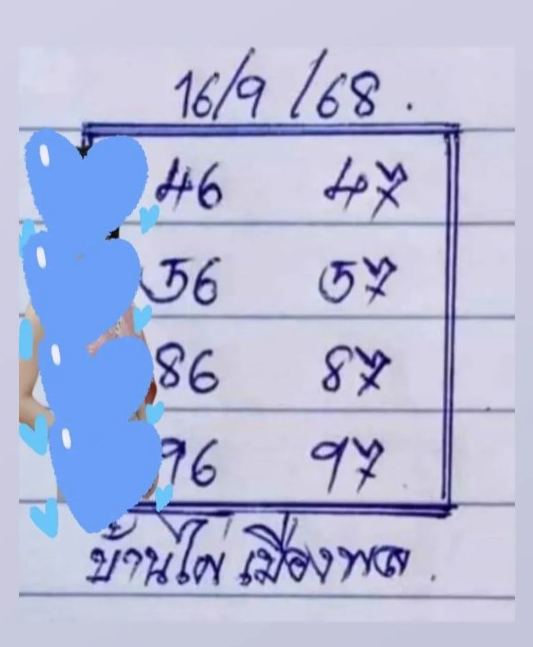 16/9/68.
46 47
56 57
86 87
96 97
บ้านไผ่ เมืองพล.